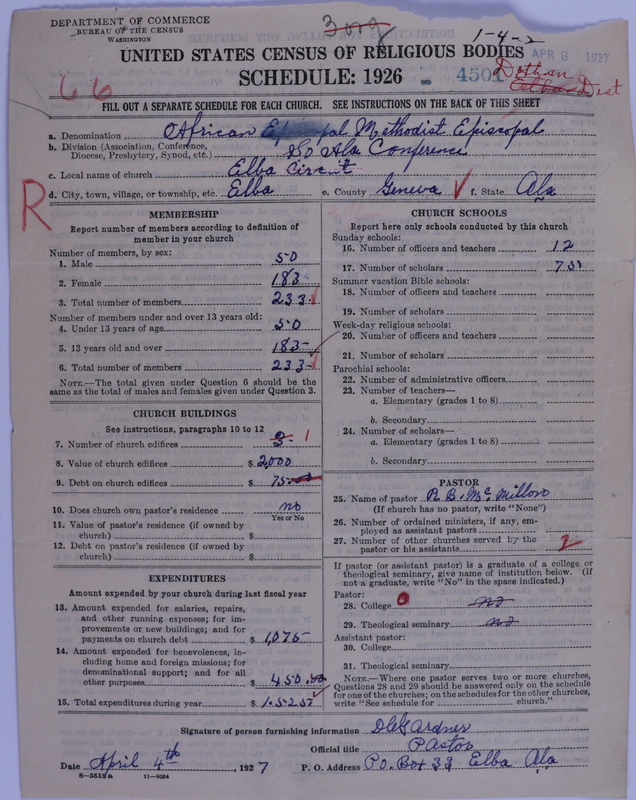 DEPARTMENT OF COMMERCE
BUREAU OF THE CENSUS
WASHINGTON
1-4-2
UNITED STATES CENSUS OF RELIGIOUS BODIES
APR 8 1927
SCHEDULE: 1926
4501
Dothan
Elba Dist
66
FILL OUT A SEPARATE SCHEDULE FOR EACH CHURCH. SEE INSTRUCTIONS ON THE BACK OF THIS SHEET
a. Denomination African Episcopal Methodist Episcopal
b. Division (Association, Conference, Diocese, Presbytery, Synod, etc.) So Ala Conference
c. Local name of church Elba Circuit
d. City, town, village, or township, etc. Elba e. County Geneva f. State Ala
R
MEMBERSHIP
Report number of members according to definition of
member in your church
Number of members, by sex:
1. Male 50
2. Female 183
3. Total number of members 233
Number of members under and over 13 years old:
4. Under 13 years of age 50
5. 13 years old and over 183
6. Total number of members 233
NOTE.—The total given under Question 6 should be
same as the total of males and females given under Question 3.
CHURCH BUILDINGS
See instructions, paragraphs 10 to 12
7. Number of church edifices 3 1
8. Value of church edifices $ 2,000
9. Debt on church edifices $ 75
10. Does church own pastor's residence no
Yes or No
11. Value of pastor's residence (if owned by
church) $
12. Debt on pastor's residence (if owned by
church) $
EXPENDITURES
Amount expended by your church during last fiscal year
13. Amount expended for salaries, repairs,
and other running expenses; for im-
provements or new buildings; and for
payments on church debt $ 1,075
14. Amount expended for benevolences, in-
cluding home and foreign missions; for
denominational support; and for all
other purposes $ 450.00
15. Total expenditures during year $ 1.525
CHURCH SCHOOLS
Report here only schools conducted by this church
Sunday schools:
16. Number of officers and teachers 12
17. Number of scholars 75
Summer vacation Bible schools:
18. Number of officers and teachers
19. Number of scholars
Week-day religious schools:
20. Number of officers and teachers
21. Number of scholars
Parochial schools:
22. Number of administrative officers
23. Number of teachers—
a. Elementary (grades 1 to 8)
b. Secondary
24. Number of scholars—
a. Elementary (grades 1 to 8)
b. Secondary
PASTOR
25. Name of pastor R. B. McMillon
(If church has no pastor, write "None")
26. Number of ordained ministers, if any, em-
ployed as assistant pastors
27. Number of other churches served by the
pastor or his assistants 2
If pastor (or assistant pastor) is a graduate of a college or
theological seminary, give name of institution below. (If
not a graduate, write "No" in the space indicated.)
Pastor:
28. College no
29. Theological seminary no
Assistant pastor:
30. College
31. Theological seminary
NOTE.—Where one pastor serves two or more churches,
Questions 28 and 29 should be answered only on the schedule
for one of the churches; on the schedules for the other churches,
write "See schedule for church."
Signature of person furnishing information D C Gardner
Official title Pastor
Date April 4th, 1927 P. O. Address P.O. Box 33 Elba Ala
8-5513a 11-9084